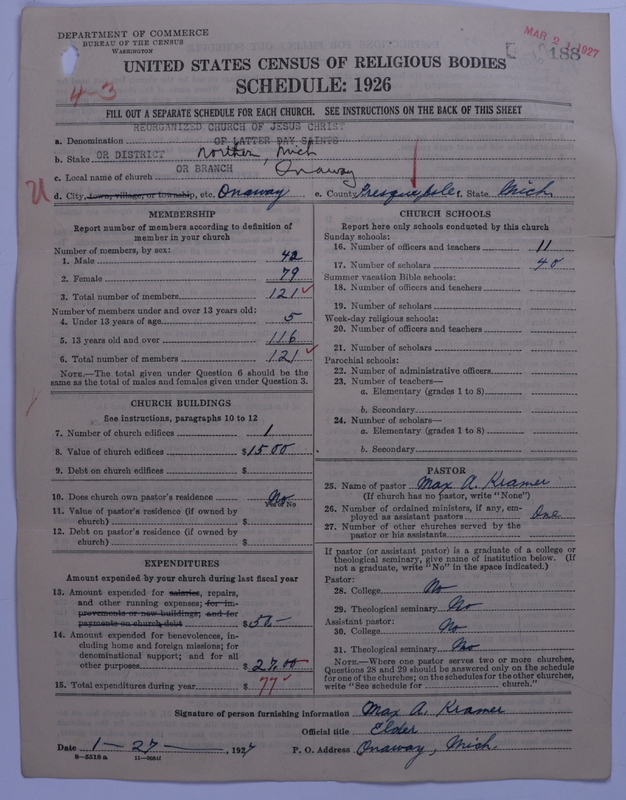 DEPARTMENT OF COMMERCE
BUREAU OF THE CENSUS
WASHINGTON
MAR 2 1927
188
UNITED STATES CENSUS OF RELIGIOUS BODIES
4-3
SCHEDULE: 1926
FILL OUT A SEPARATE SCHEDULE FOR EACH CHURCH. SEE INSTRUCTIONS ON THE BACK OF THIS SHEET
REORGANIZED CHURCH OF JESUS CHRIST
a. Denomination OF LATTER DAY SAINTS
b. Stake OR DISTRICT Northern, Mich
c. Local name of church OR BRANCH Onaway
d. City, town, village, or township, etc. Onaway e. County Presque Isle f. State Mich
MEMBERSHIP
Report number of members according to definition of
member in your church
Number of members, by sex:
1. Male 42
2. Female 79
3. Total number of members 121
Number of members under and over 13 years old:
4. Under 13 years of age 5
5. 13 years old and over 116
6. Total number of members 121
NOTE.—The total given under Question 6 should be the
same as the total of males and females given under Question 3.
CHURCH BUILDINGS
See instructions, paragraphs 10 to 12
7. Number of church edifices 1
8. Value of church edifices $1500
9. Debt on church edifices $
10. Does church own pastor's residence No
Yes or No
11. Value of pastor's residence (if owned by
church) $
12. Debt on pastor's residence (if owned by
church) $
EXPENDITURES
Amount expended by your church during last fiscal year
13. Amount expended for salaries, repairs,
and other running expenses; for im-
provements or new buildings; and for
payments on church debt $50.-
14. Amount expended for benevolences, in-
cluding home and foreign missions; for
denominational support; and for all
other purposes $27.00
15. Total expenditures during year $77
CHURCH SCHOOLS
Report here only schools conducted by this church
Sunday schools:
16. Number of officers and teachers 11
17. Number of scholars 40
Summer vacation Bible schools:
18. Number of officers and teachers
19. Number of scholars
Week-day religious schools:
20. Number of officers and teachers
21. Number of scholars
Parochial schools:
22. Number of administrative officers
23. Number of teachers—
a. Elementary (grades 1 to 8)
b. Secondary
24. Number of scholars—
a. Elementary (grades 1 to 8)
b. Secondary
PASTOR
25. Name of pastor Max A. Kramer
(If church has no pastor, write "None")
26. Number of ordained ministers, if any, em-
ployed as assistant pastors One
27. Number of other churches served by the
pastor or his assistants
If pastor (or assistant pastor) is a graduate of a college or
theological seminary, give name of institution below. (If
not a graduate, write "No" in the space indicated.)
Pastor:
28. College No
29. Theological seminary No
Assistant pastor:
30. College No
31. Theological seminary No
NOTE.—Where one pastor serves two or more churches,
Questions 28 and 29 should be answered only on the schedule
for one of the churches; on the schedules for the other churches,
write "See schedule for church."
Signature of person furnishing information Max A. Kramer
Official title Elder
Date 1-27-, 1927 P. O. Address Onaway, Mich.
8-5518a